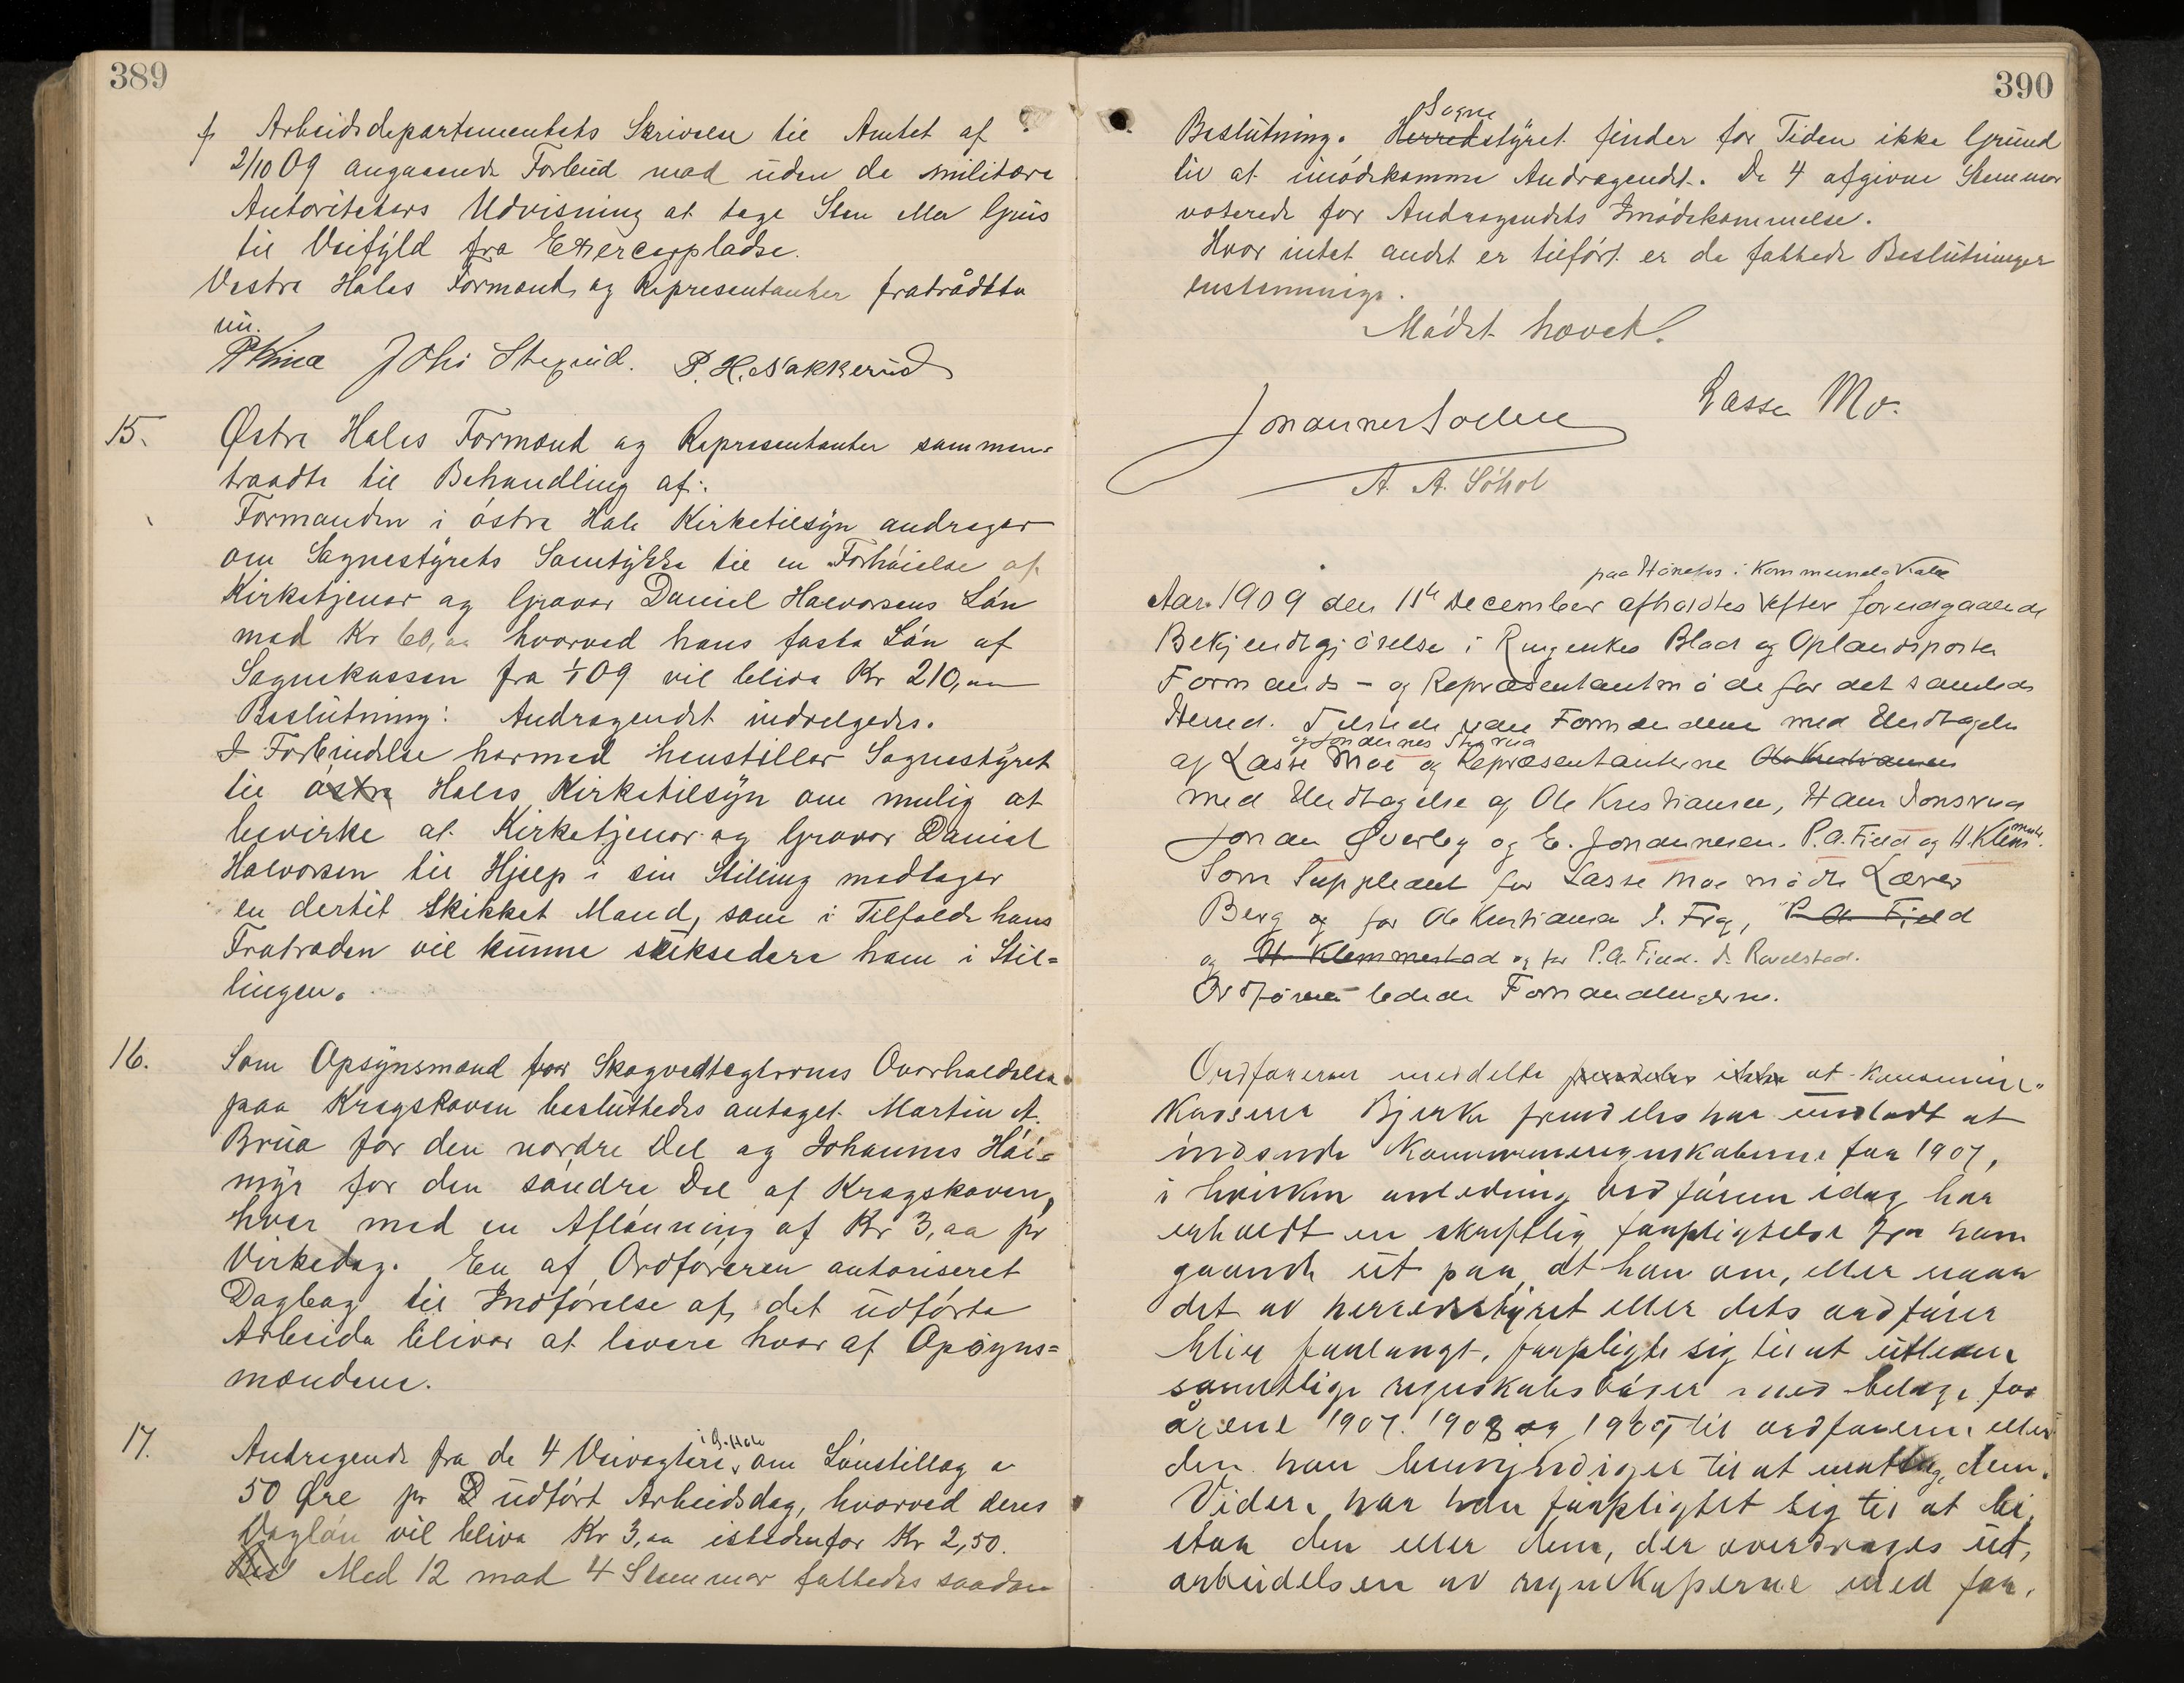 389
f Arbeidsdepartementets Skrivelse til Amtet af
2/10 09 angaaende Forbud mod uden de militære
Autoriteters Udvisning at tage Sten eller Grus
til Veifyld fra Exercerpladse.
Vestre Holes Formænd og Repræsentanter fratrådte
nu.
P. H. Nakkerud
15. Østre Holes Formænd og Repræsentanter sammen-
traadte til Behandling af:
Formanden i østre Hole Kirketilsyn andrager
om Sognestyrets Samtykke til en Forhøielse af
Kirketjener og Graver Daniel Halvorsens Løn
med Kr 60,00 hvorved hans faste Løn af
Sognekassen fra 1/1 09 vil blive Kr 210,00
Beslutning: Andragendet indvilgedes.
I Forbindelse hermed henstiller Sognestyret
til østre Holes Kirketilsyn om mulig at
bevirke at Kirketjener og Graver Daniel
Halvorsen til Hjælp i sin Stilling modtager
en dertil skikket Mand, som i Tilfælde hans
Fratræden vil kunne suksedere ham i Stil=
lingen.
16. Som Opsynsmænd for Skogvedtægternes Overholdelse
paa Krogskoven besluttedes antaget Martin A.
Brua for den nordre Del og Johannes Høi=
myr for den søndre Del af Krogskoven,
hver med en Aflønning af Kr 3,00 pr
Virkedag. En af Ordføreren autoriseret
Dagbog til Indførelse af det udførte
Arbeide bliver at levere hver af Opsyns=
mændene.
17. Andragende fra de 4 Veivogtere i Ø. Hole om Lønstillæg a
50 Øre pr udført Arbeidsdag, hvorved deres
Dagløn vil blive Kr 3,00 istedenfor Kr 2,50.
Bes Med 12 mod 4 Stemmer fattedes saadan
390
Beslutning. Herred Sognestyret finder for Tiden ikke Grund
til at imødekomme Andragendet. De 4 afgivne Stemmer
voterede for Andragendets Imødekommelse.
Hvor intet andet er tilført er de fattede Beslutninger
enstemmige.
Mødet hævet.
Lasse Mo.
A. A. Søhol
paa Hønefos i Kommunelokale
Aar 1909 den 11te December afholdtes efter forudgaaende
Bekjendtgjørelse i Ringerikes Blad og Oplandsposten
Formands- og Repræsentantmøde for det samlede
Herred. Tilstede var Formændene med Undtagelse
af Lasse Moe og Repræsentanterne Ole Kristiansen
med Undtagelse af Ole Kristiansen, Hans
Johan Øverby og E. Johannesen. P.A. Field og H. Klemmets.
Som Suppleant for Lasse Moe mødte Lærer
Berg og for Ole Kristiansen P. A. Field
og H. Klemmestad og for P.A. Field.
Ordføreren ledede Forhandlingerne.
Ordføreren meddelte fremdeles at kommune-
kasserer Bjerke fremdeles har undladt at
indsende Kommuneregnskaberne for 1907,
i hvilken anledning ordføreren idag har
erholdt en skriftlig forpligtelse fra ham
gaaende ut paa, at han om, eller naar
det av herredsstyret eller dets ordfører
blir forlangt, forpligte sig til at utlevere
samtlige regnskabsbøger med belæge for
årene 1907. 1908 og 1909 til ordføreren eller
den han bemyndiger til at motta dem.
Videre har han forpligtet sig til at bi-
staa den eller dem, der overdrages ut-
arbeidelsen av regnskaperne med for-